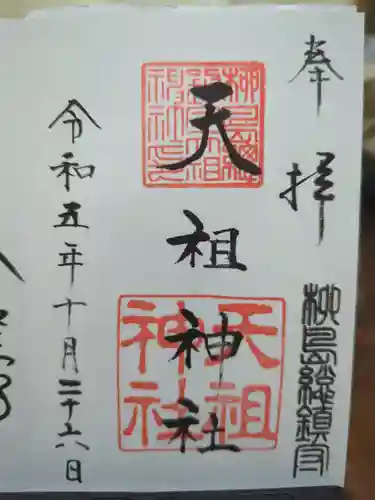 奉拝
柳島総鎮守
天祖神社
天祖神社
令和五年十月二十六日